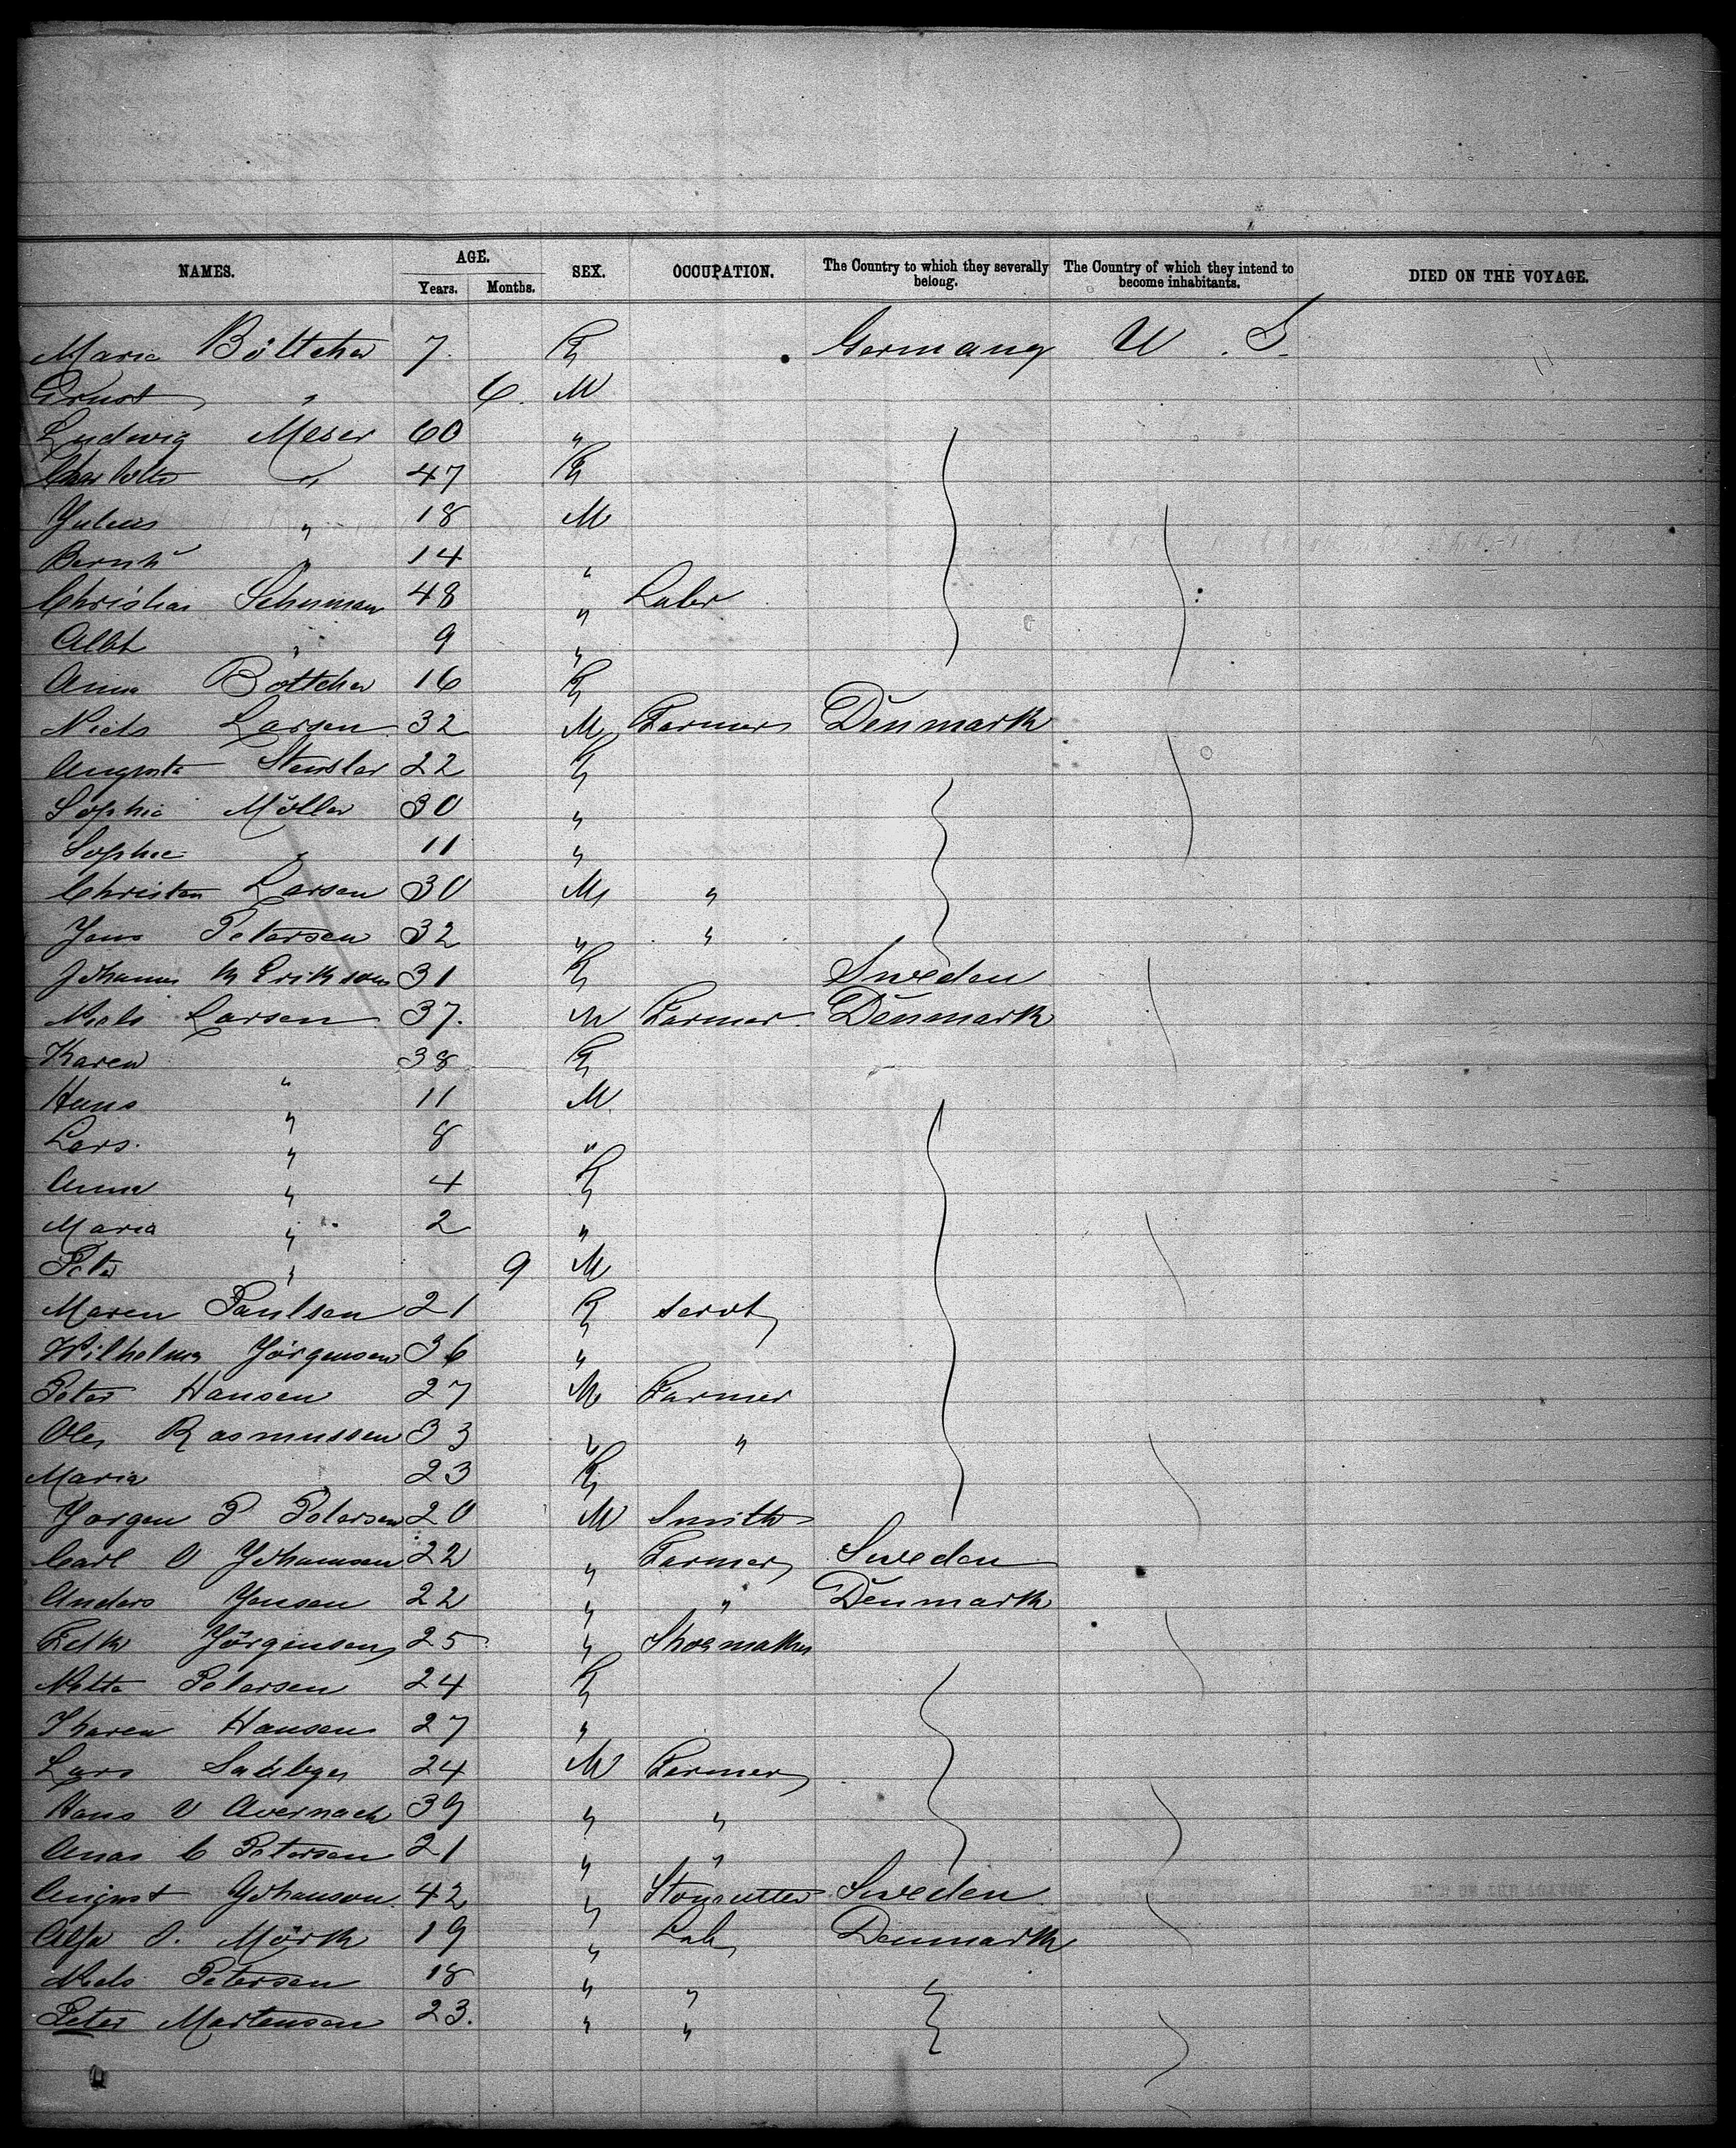 NAMES. AGE. Years. Months. SEX. OCCUPATION. The Country to which they severally belong. The Country of which they intend to become inhabitants. DIED ON THE VOYAGE.
Maria Böttcher 7. F Germany U. S.
Ernst " 6. M
Ludwig Meser 60 "
Charlotte " 47 F
Julius " 18 M
Bernhd " 14 "
Christian Schuman 48 " Labr
Albt " 9 "
Anna Böttcher 16 F
Niels Larsen 32 M Farmer Denmark
Augusta Stensler 22 F
Sophie Möller 30 "
Sophie " 11 "
Christen Larsen 30 M "
Jens Petersen 32 " "
Johanna M Erikson 31 F Sweden
Niels Larsen 37. M Farmer Denmark
Karen " 38 F
Hans " 11 M
Lars. " 8 "
Anna " 4 F
Maria " 2 "
Peter " 9 M
Maren Paulsen 21 F Servt
Wilhelma Jörgensen 36 "
Peter Hansen 27 M Farmer
Ole Rasmussen 33 " "
Maria 23 F
Jorgen P Petersen 20 M Smith
Carl O Johansen 22 " Farmer Sweden
Anders Jensen 22 " " Denmark
Jörgensen 25 " Shoemaker
Mette Petersen 24 F
Karen Hansen 27 "
Lars 24 M Farmer
Hans V Avernach 39 " "
C Petersen 21 " "
August Johanson 42 " Stonecutter Sweden
Mörk 19 " Lab Denmark
Niels Petersen 18 " "
Peter Martensen 23. " "